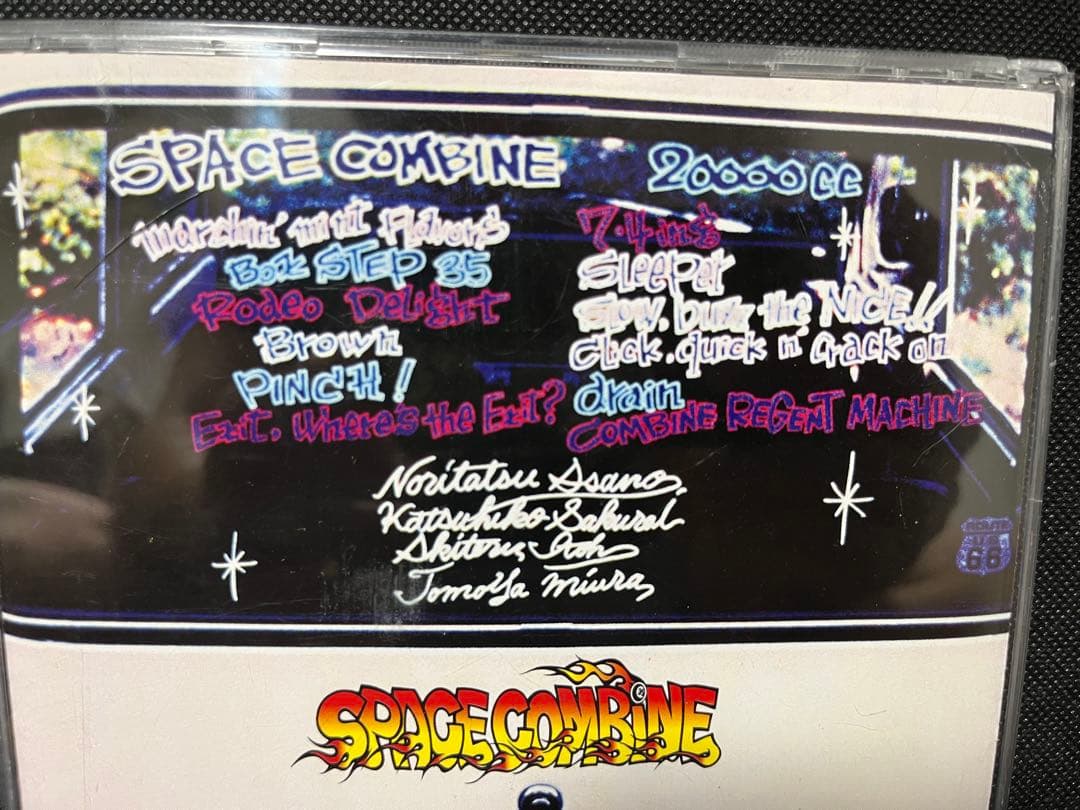 SPACE COMBINE 20000cc
marchin' mint Flavors
BOX STEP 35
Rodeo Delight
Brown
PINCH!
Exit. Where's the Exit?
7.4in$
Sleeper
Slow, buzz the NICE!!
Click, quick n' Crack on
drain
COMBINE REGENT MACHINE
Noritatsu Asano
Katsuhiko Sakurai
Akitoru Itoh
Tomoya Miura
ROUTE
US
66
SPACE COMBINE